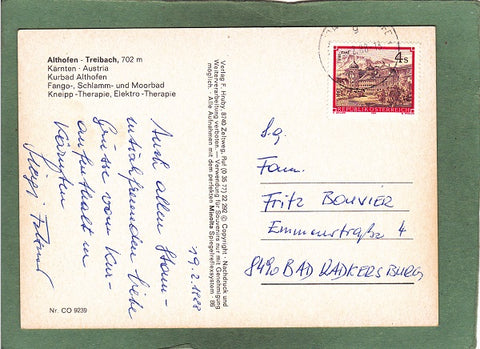 Althofen - Treibach, 702 m
Kärnten · Austria
Kurbad Althofen
Fango-, Schlamm- und Moorbad
Kneipp -Therapie, Elektro -Therapie
Verlag F. Hruby, 8740 Zeltweg, Ruf (0 35 77) 22 292 © Copyright · Nachdruck und
Weiterverarbeitung verboten. — Verwendung für Souvenirs nur mit Genehmigung
möglich. · Alle Aufnahmen mit dem perfekten Minolta Spiegelreflexsystem
19.2.
Auch allen Stamm-
tischfreunden liebe
Grüsse vom Kur-
aufenthalt in
Kärnten
Nr. CO 9239
4 S
REPUBLIK ÖSTERREICH
S.g.
Fam.
Fritz BOUVIER
Emmenstraße 4
8490 BAD RADKERSBURG